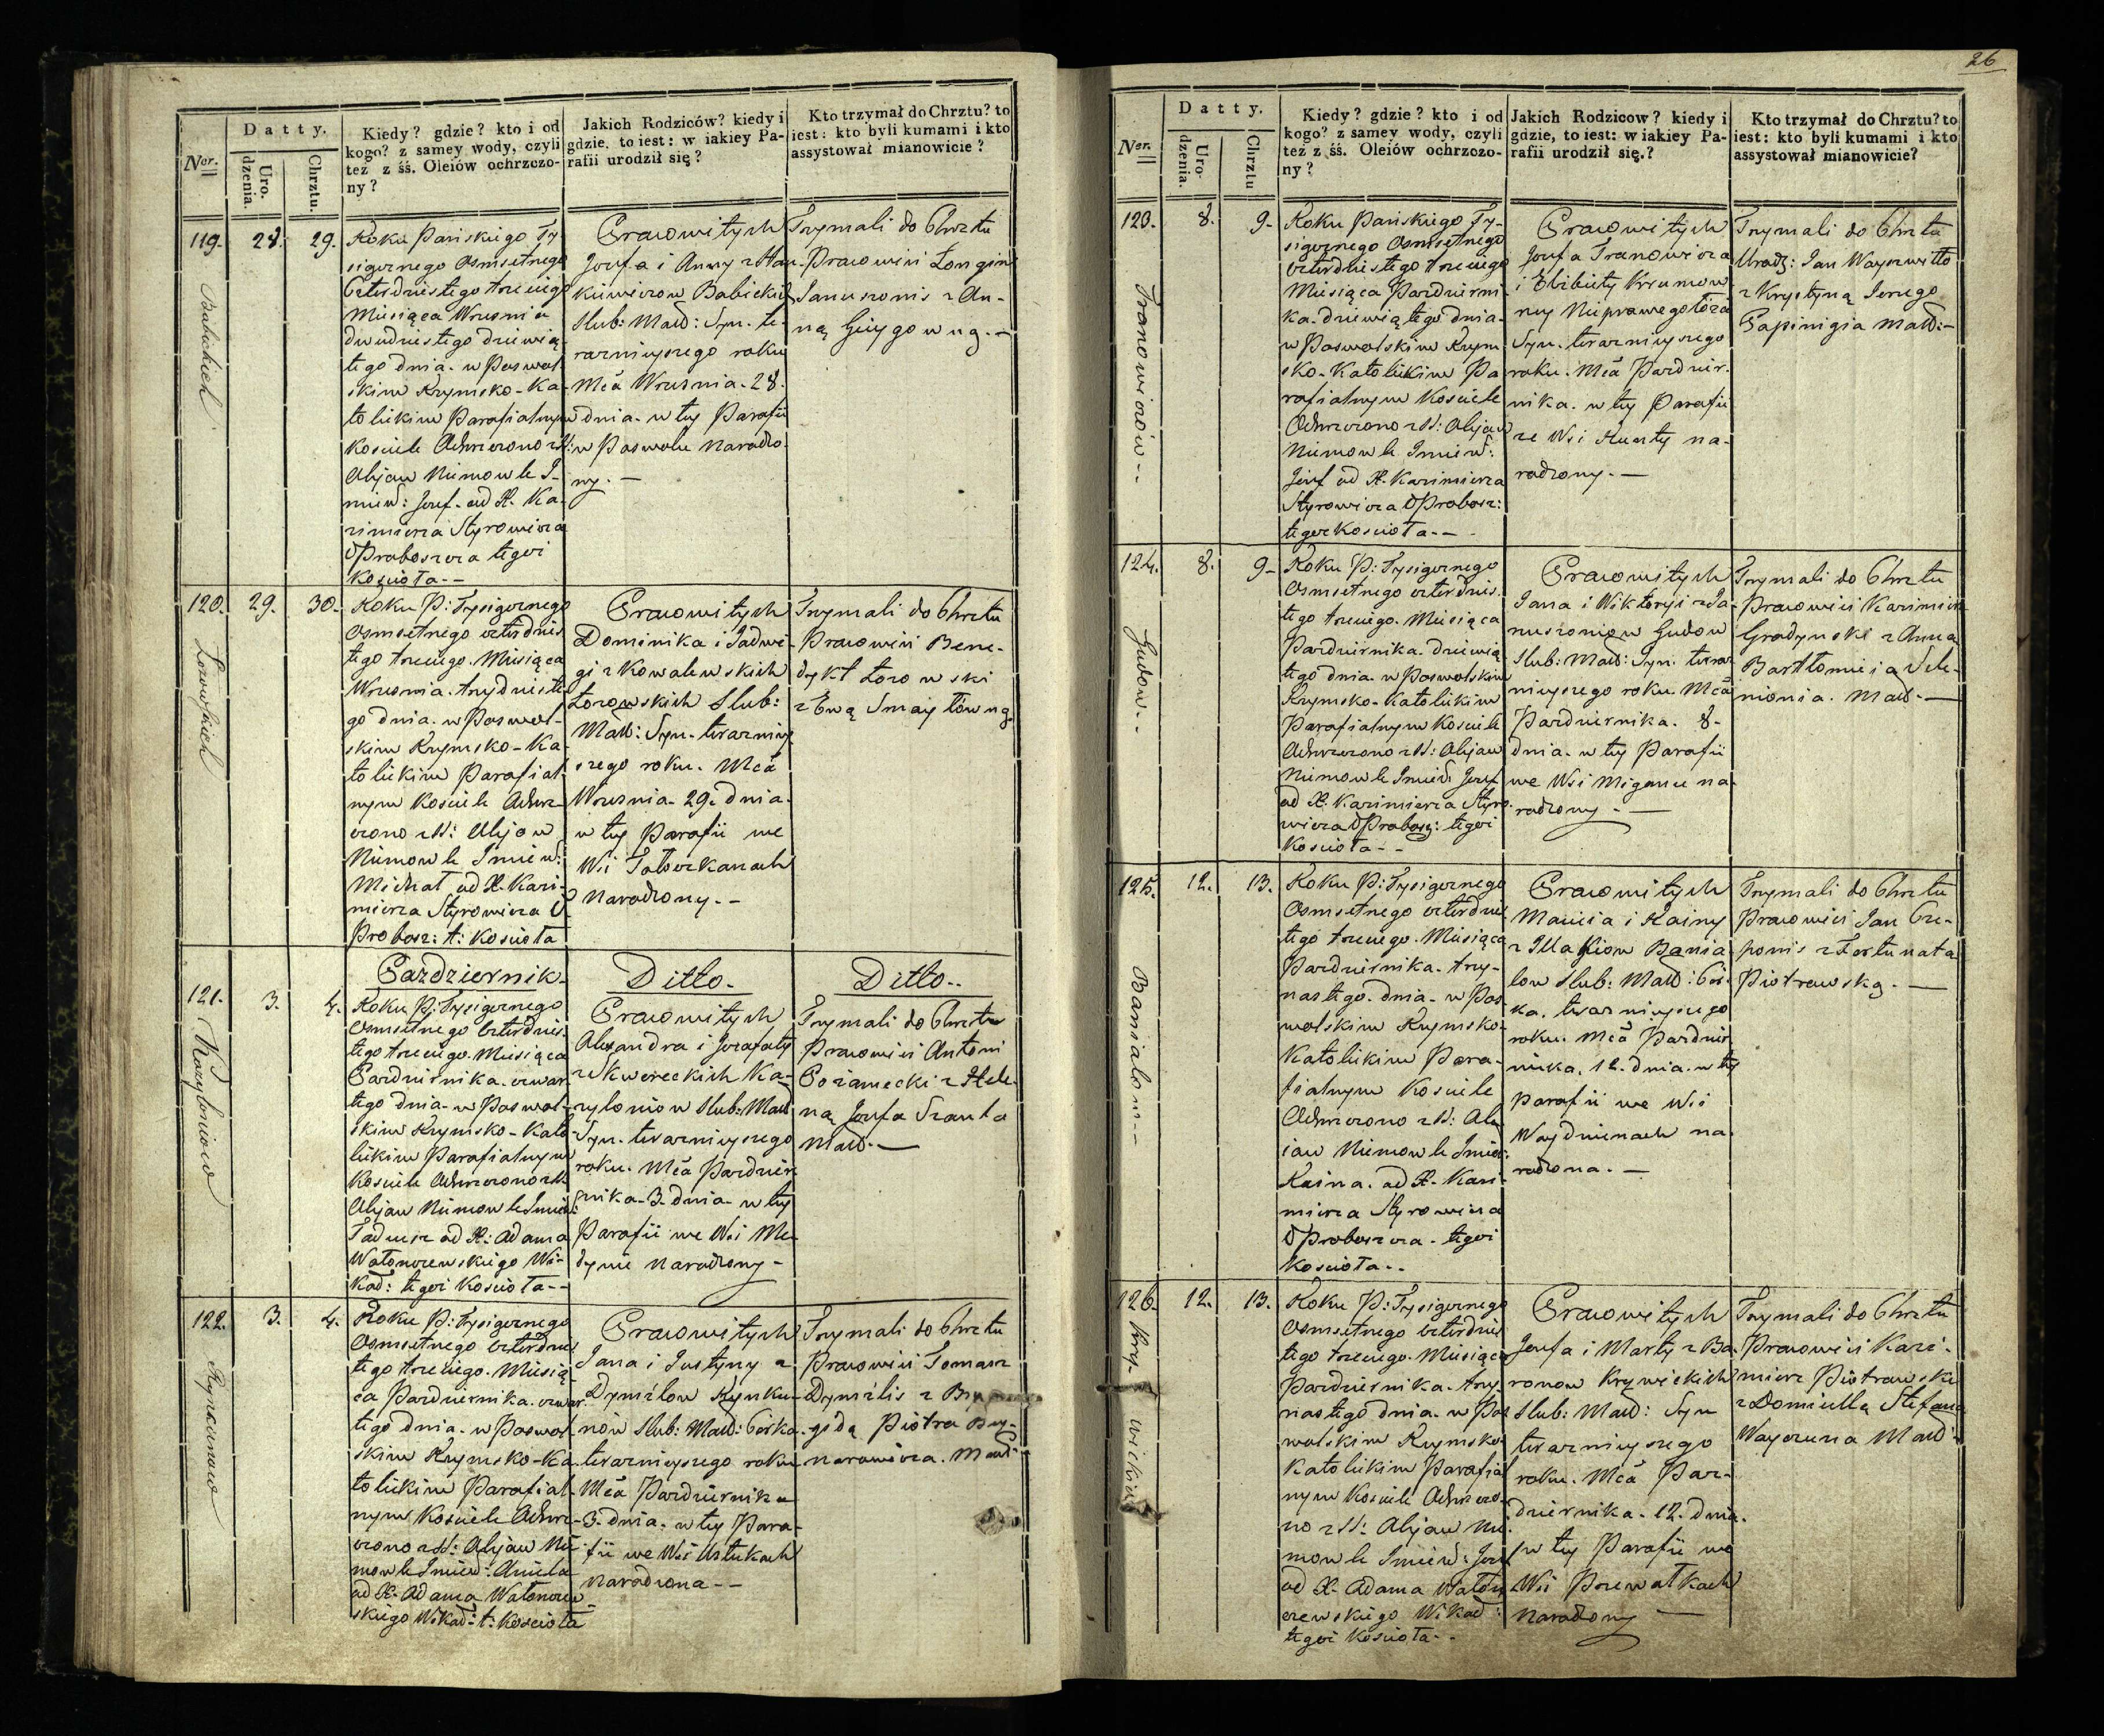 26
Ner.
Datty.
Urodzenia.
Chrztu.
Kiedy? gdzie? kto i od
kogo? z samey wody, czyli
też z śś. Oleiów ochrzczo-
ny?
Jakich Rodziców? kiedy i
gdzie, to iest: w iakiey Pa-
rafii urodził się?
Kto trzymał do Chrztu? to
iest: kto byli kumami i kto
assystował mianowicie?
119.
Babickich
28.
29.
Roku Pańskiego Ty-
siącznego Osmsetnego
Czterdziestego trzeciego
Miesiąca Wrzesnia
dwudziestego dziewią
tego dnia. w Poswol-
skim Rzymsko-Ka-
tolickim Parafialnym
Kosciele Ochrzczono z SS:
Olejow Niemowle I-
mieniem: Jozef. od X. Ka-
zimierza Styrowicza
Proboszcza tegoż
Kosciola--
Pracowitych
Jozefa i Anny z Han-
kiewiczow Babickich
Slub: Małż: Syn. te-
razniejszego roku
Mca Wrzesnia. 28.
dnia. w tej Parafii
w Poswolu Narodzo-
ny.—
Trzymali do Chrztu
Pracowici Longin
Januszonis z An-
ną Gieygowną.—
120.
Lozowskich
29.
30.
Roku P: Tysiącznego
Osmsetnego czterdzies
tego trzeciego. Miesiąca
Wrzesnia. trzydzieste
go dnia. w Poswol-
skim Rzymsko-Ka-
tolickim Parafial-
nym Kosciele Ochrz-
czono z SS: Olejow
Niemowle Imieniem:
Michał od X. Kazi-
mierza Styrowicza
Probosz: t: Kosciola
Pracowitych
Dominika i Jadwi-
gi z Kowalewskich
Łozowskich Slub:
Małż: Syn. terazniej
szego roku. Mca
Wrzesnia. 29. dnia.
w tej Parafii we
Wsi Tatoczkanach
Narodzony.--
Trzymali do Chrztu
Pracowici Bene-
dykt Łozowski
z Ewą Smaytowną.
Pazdziernik.
Ditto.
Ditto..
121.
3.
4.
Roku P: Tysiącznego
Osmsetnego Czterdzies
tego trzeciego. Miesiąca
Pazdziernika. czwar
tego dnia. w Poswol-
skim Rzymsko-Kato
lickim Parafialnym
Kosciele Ochrzczono z SS:
Olejow Niemowle Imien:
Tadeusz od X: Adama
Watonczewskiego Wi-
kad: tegoż Kosciola--
Pracowitych
Alexandra i Jozafaty
z Kworeckich Ka-
zyloniow Slub: Małż
Syn. terazniejszego
roku. Mca Pazdzier
nika. 3. dnia. w tej
Parafii we Wsi Me
dynie Narodzony-
Trzymali do Chrztu
Pracowici Antoni
Pożamecki z Hele-
ną Jozefa Szanta
Małż.—
122.
3.
4.
Roku P: Tysiącznego
Osmsetnego Czterdzies
tego trzeciego. Miesią-
ca Pazdziernika. czwar
tego dnia. w Poswol
skim Rzymsko-Ka
tolickim Parafial
nym Kosciele Ochrz-
czono z SS: Olejow Nie
mowle Imien: Aniela
od X. Adama Watoncze
skiego Wikad: t: Kosciola
Pracowitych
Jana i Justyny z
Dymślow Rynku-
now Slub: Małż: Corka.
terazniejszego roku
Mca Pazdziernika
3. dnia. w tej Para-
fii we Wsi Ustukach
Narodzona--
Trzymali do Chrztu
Pracowici Tomasz
Dymślis z
godą Piotra
narowicza. Małż
Ner.
Datty.
Urodzenia.
Chrztu
Kiedy? gdzie? kto i od
kogo? z samey wody, czyli
też z śś. Oleiów ochrzczo-
ny?
Jakich Rodzicow? kiedy i
gdzie, to iest: w iakiey Pa-
rafii urodził się.?
Kto trzymał do Chrztu? to
iest: kto byli kumami i kto
assystował mianowicie?
123.
Franowiczow--
8.
9.
Roku Pańskiego Ty-
siącznego Osmsetnego
czterdziestego trzeciego
Miesiąca Pazdzierni
ka. dziewiątego dnia.
w Poswolskim Rzym
sko-Katolickim Pa
rafialnym Kosciele
Ochrzczono z SS: Olejow
Niemowle Imien:
Jozef od X. Kazimierza
Styrowicza Probosz:
tegoż Kosciola--
Pracowitych
Jozefa Franowicza
i Elżbiety Krzumow
ney Nieprawego łoża
Syn. terazniejszego
roku. Mca Pazdzier.
nika. w tej Parafii
ze Wsi Kunty na-
rodzony.—
Trzymali do Chrztu
Urodz: Jan Wayszwiłło
z Krystyną Jerzego
Papinigia Małż:—
124.
Gudow--
8.
9.
Roku P: Tysiącznego
Osmsetnego czterdzies.
tego trzeciego. Miesiąca
Pazdziernika. dziewią
tego dnia. w Poswolskim
Rzymsko-Katolickim
Parafialnym Kosciele
Ochrzczono z SS: Olejow
Niemowle Imien: Jozef
od X. Kazimierza Styro
wicza Probosz: tegoż
Kosciola--
Pracowitych
Jana i Wiktoryi z Ja-
nuszoniow Gudow
Slub: Małż: Syn. teraz
niejszego roku. Mca
Pazdziernika. 8.
dnia. w tej Parafii
we Wsi Migance na-
rodzony.—
Trzymali do Chrztu
Pracowici Kazimierz
Gradynski z Anna
Bartłomieja Sele-
nionia. Małż.—
125.
Banialow--
12.
13.
Roku P: Tysiącznego
Osmsetnego czterdzies
tego trzeciego. Miesiąca
Pazdziernika. trzy-
nastego. dnia. w Pos
wolskim Rzymsko-
Katolickim Para-
fialnym Kosciele
Ochrzczono z SS: Ole
jow Niemowle Imien:
Kaina. od X. Kazi-
mierza Styrowicza
Proboszcza. tegoż
Kosciola..
Pracowitych
Macieia i Kainy
z Illakiow Bania
low Slub: Małż: Cór-
ka. terazniejszego
roku. Mca Pazdzier
nika. 12. dnia. w tej
Parafii we Wsi
Waydninach na-
rodzona.—
Trzymali do Chrztu
Pracowici Jan Cze-
ponis z Fortunata
Piotrowską.—
126.
Krzy- wickich
12.
13.
Roku P: Tysiącznego
Osmsetnego Czterdzies
tego trzeciego. Miesiąca
Pazdziernika. trzy-
nastego dnia. w Pos
wolskim Rzymsko-
Katolickim Parafial
nym Kosciele Ochrzczo-
no z SS: Olejow Nie-
mowle Imien: Jozef
od X. Adama Watoń
czewskiego Wikad:
tegoż Kosciola..
Pracowitych
Jozefa i Marty z Ba
ronow Krzywickich
Slub: Małż: Syn
terazniejszego
roku. Mca Paz-
dziernika. 12. dnia.
w tej Parafii we
Wsi Przewałkach
Narodzony—
Trzymali do Chrztu
Pracowici Kazi-
mierz Piotrowski
z Domicellą Stefana
Wayczuna Małż: